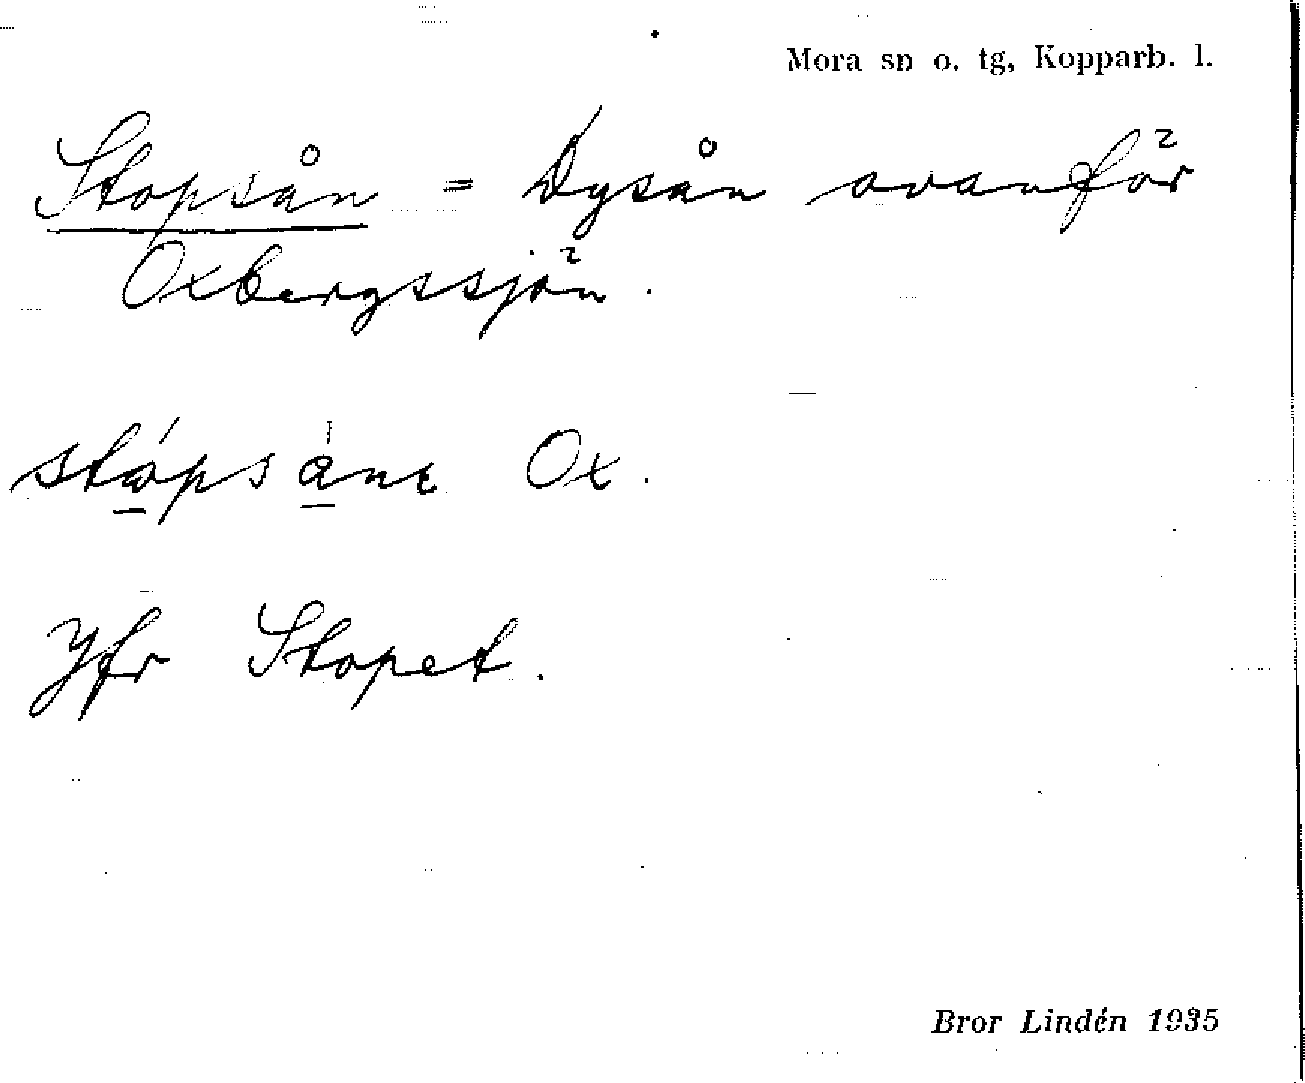 Mora sn o. tg, Kopparb. l.
Stopsån = Dysån ovanför
Oxbergssjön.
stópsånɛ Ox.
Jfr Stopet.
Bror Lindén 1935